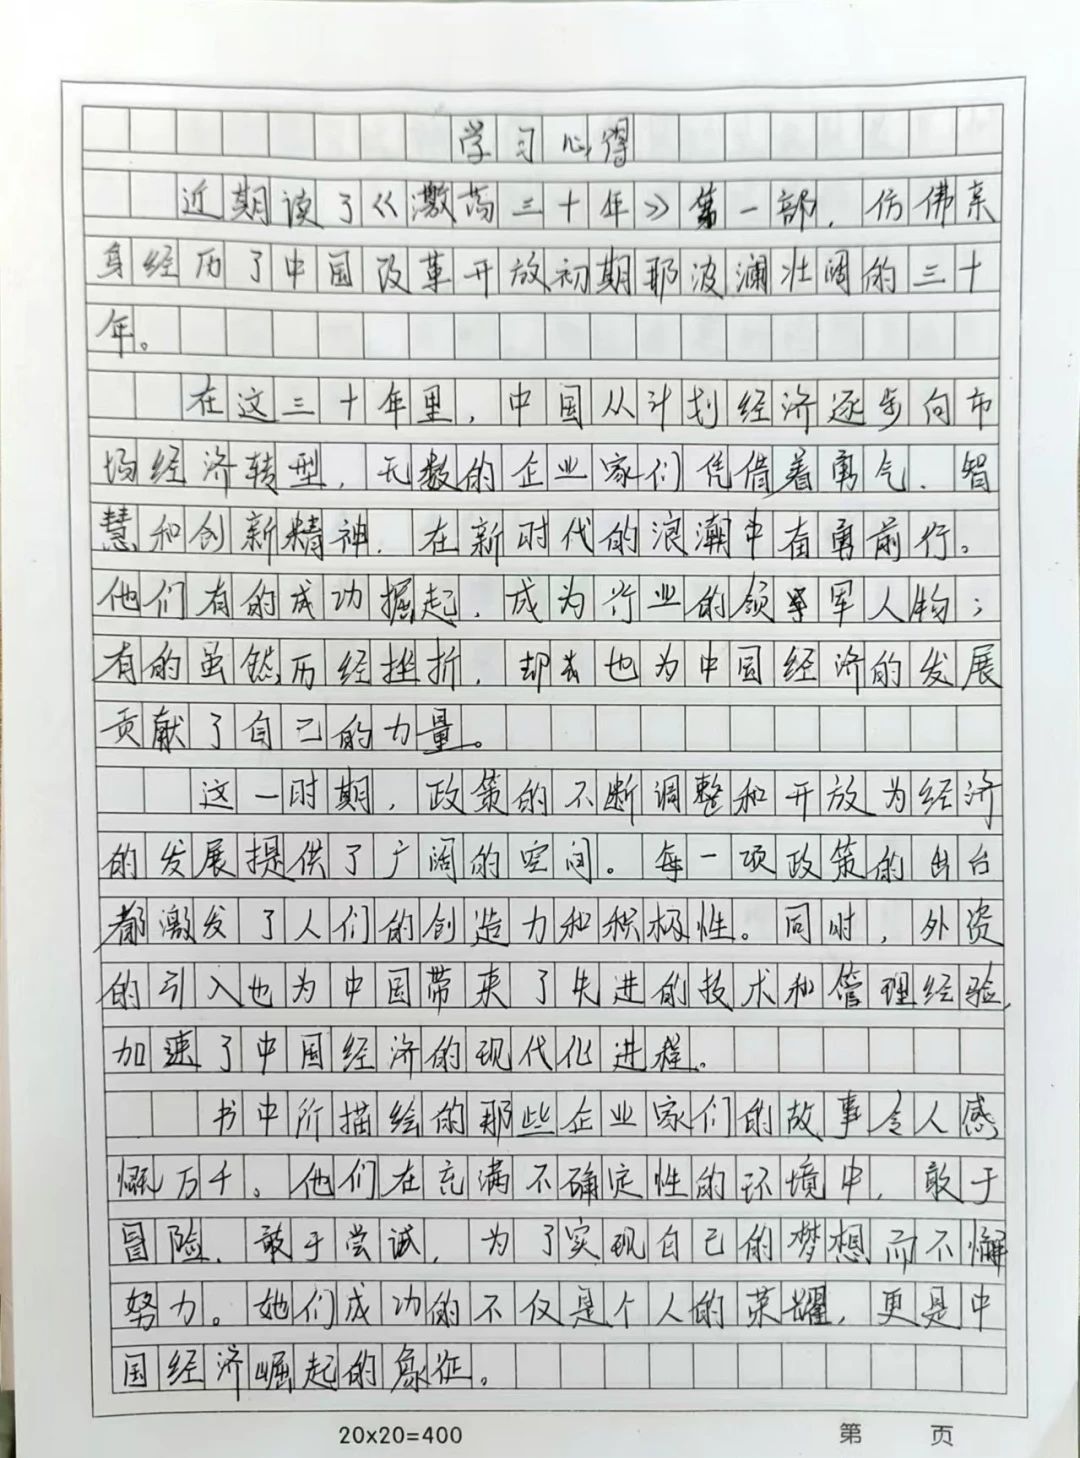 学习心得
近期读了《激荡三十年》第一部，仿佛亲
身经历了中国改革开放初期那波澜壮阔的三十
年。
在这三十年里，中国从计划经济逐步向市
场经济转型，无数的企业家们凭借着勇气、智
慧和创新精神，在新时代的浪潮中奋勇前行。
他们有的成功掘起，成为行业的领军人物；
有的虽然历经挫折，却也为中国经济的发展
贡献了自己的力量。
这一时期，政策的不断调整和开放为经济
的发展提供了广阔的空间。每一项政策的出台
都激发了人们的创造力和积极性。同时，外资
的引入也为中国带来了先进的技术和管理经验，
加速了中国经济的现代化进程。
书中所描绘的那些企业家们的故事令人感
慨万千。他们在充满不确定性的环境中，敢于
冒险、敢于尝试，为了实现自己的梦想而不懈
努力。她们成功的不仅是个人的荣耀，更是中
国经济崛起的象征。
20x20=400
第 页